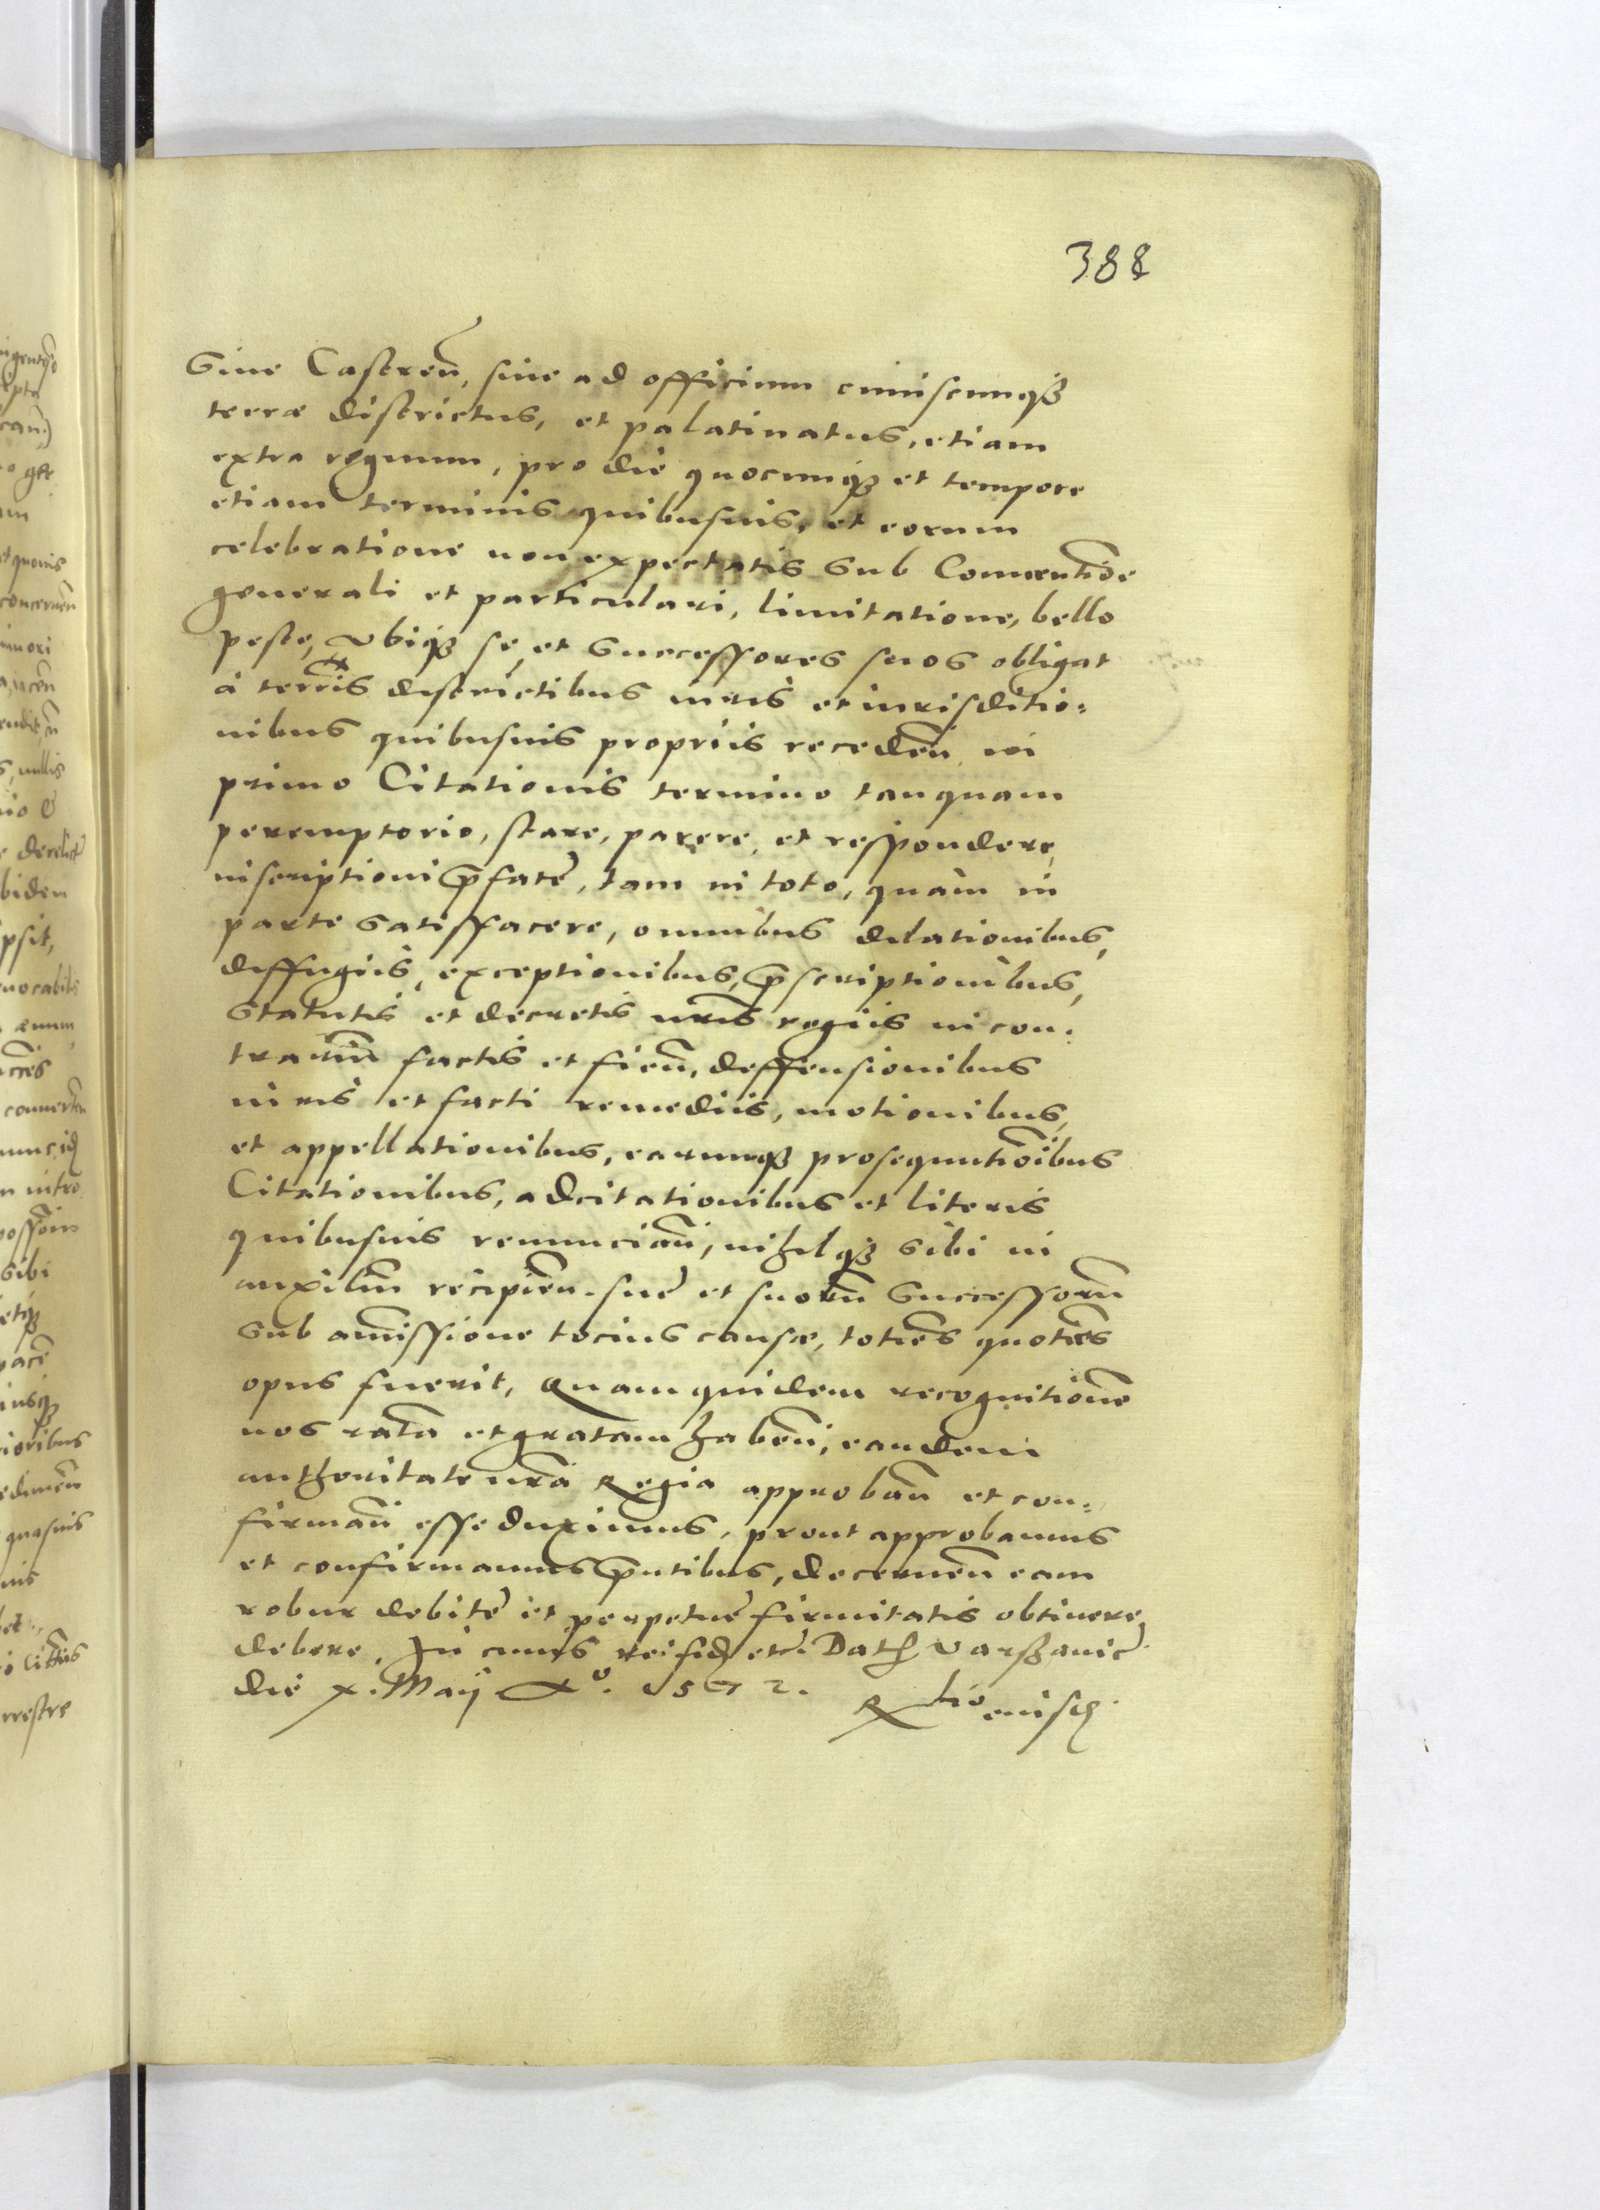 388
Siue Castreñ, siue ad officium cuiuscunqȝ
terræ districtus, et palatinatus, etiam
extra regnum, pro die quocunqȝ et tempore
etiam terminis quibusuis, et eorum
celebratione non expectatis sub Conuentiōe
generali et particulari, limitatione, bello
peste, vbiqȝ se, et Successores suos obligat
à terris districtibus iuris et iurisditio:
nibus quibusuis propriis recedeñ, in
primo Citationis termino tanquam
peremptorio, stare, parere, et respondere,
inscriptioni p̃fatę, tam in toto, quàm in
parte satisffacere, omnibus dilationibus,
diffugiis, exceptionibus, p̃scriptionibus,
Statutis et decretis nr̃is regiis in con:
trariũ factis et fieñ, deffensionibus
iuris et facti remediis, motionibus,
et appellationibus, earumqȝ prosequutiōibus
Citationibus, adcitationibus et literis
quibusuis renunciañ, nihilqȝ sibi in
auxiliũ recipieñ. suę et suorũ Successorũ
sub amissione tocius causæ, toties quoties
opus fuerit, Quam quidem recognitionē
nos ratã et gratam habeñ, eandem
authoritate nr̃a Regia approbañ et con:
firmañ esse duximus, prout approbamus
et confirmamus p̃ntibus, decerneñ eam
robur debitę et perpetuę firmitatis obtinere
debere, In cuius rei fidē etc. Dat Varssauię
die x. Maij Aº. 1572.